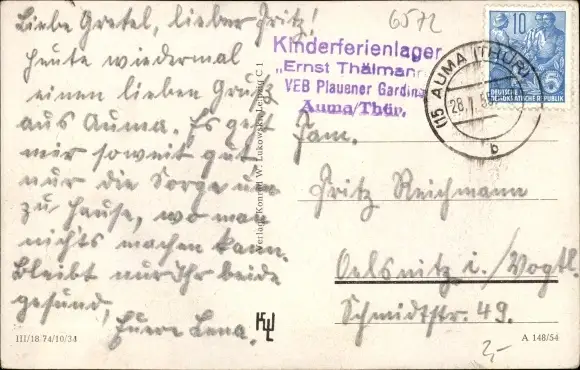 Liebe Gretel, lieber Fritz!
Heute wiedermal
einen lieben Gruß
aus Auma. Es geht
mir soweit gut
nur die Sorge um
zu Hause, wo man
nichts machen kann.
Bleibt nur Ihr beide
gesund,
Euere Lena.
III/18 74/10/34
Verlag Konrad W. Lukowski, Leipzig C 1
KWL
6572
Kinderferienlager
„Ernst Thälmann
VEB Plauener Gardine
Auma/Thür.
10
DEUTSCHE
DEMOKRATISCHE REPUBLIK
(15) AUMA (THÜR)
b
Fam.
Fritz Reichmann
Oelsnitz i./Vogtl.
Schmidtstr. 49.
2,-
A 148/54